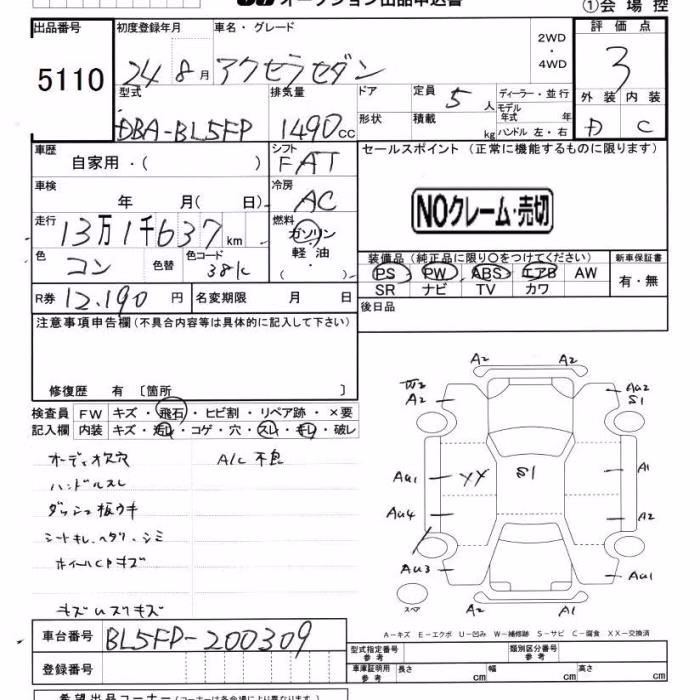 オークション出品申込書
①会場控
出品番号 5110
初度登録年月 24年8月
車名・グレード アクセラセダン
2WD・4WD
評価点 3
外装 D 内装 C
型式 DBA-BL5FP
排気量 1490cc
ドア
形状
定員 5人
積載 kg
ディーラー・並行
モデル年式 年
ハンドル 左・右
車歴 自家用・( )
シフト FAT
セールスポイント(正常に機能するものに限ります)
車検 年 月( 日)
冷房 AC
NOクレーム・売切
走行 13万1千637km
燃料 ガソリン・軽油・( )
色 コン 色替 色コード 38K
装備品(純正品に限り○をつけてください)
新車保証書
PS PW ABS エアB AW
有・無
SR ナビ TV カワ
R券 12,190円
名変期限 月 日
後日品
注意事項申告欄(不具合内容等は具体的に記入して下さい)
修復歴 有〔箇所 〕
検査員 FW キズ・飛石・ヒビ割・リペア跡・×要
記入欄 内装 キズ・汚れ・コゲ・穴・スレ・キレ・破レ
オーディオ欠穴 A/C不良
ハンドルスレ
ダッシュ板ウキ
シートキレ、ヘタリ・シミ
ホイールCPキズ
A2 A2
W2 A2
AU2 S1
AU1 YY S1 A1
AU4 A2
AU3 AU1
スペア
A2 A1
A-キズ E-エクボ U-凹み W-補修跡 S-サビ C-腐食 XX-交換済
車台番号 BL5FP-200309
型式指定番号 参考
類別区分番号 参考
登録番号
車庫証明用 参考 長さ cm 幅 cm 高さ cm
希望出品コーナー(コーナーは各会場により異なります。)